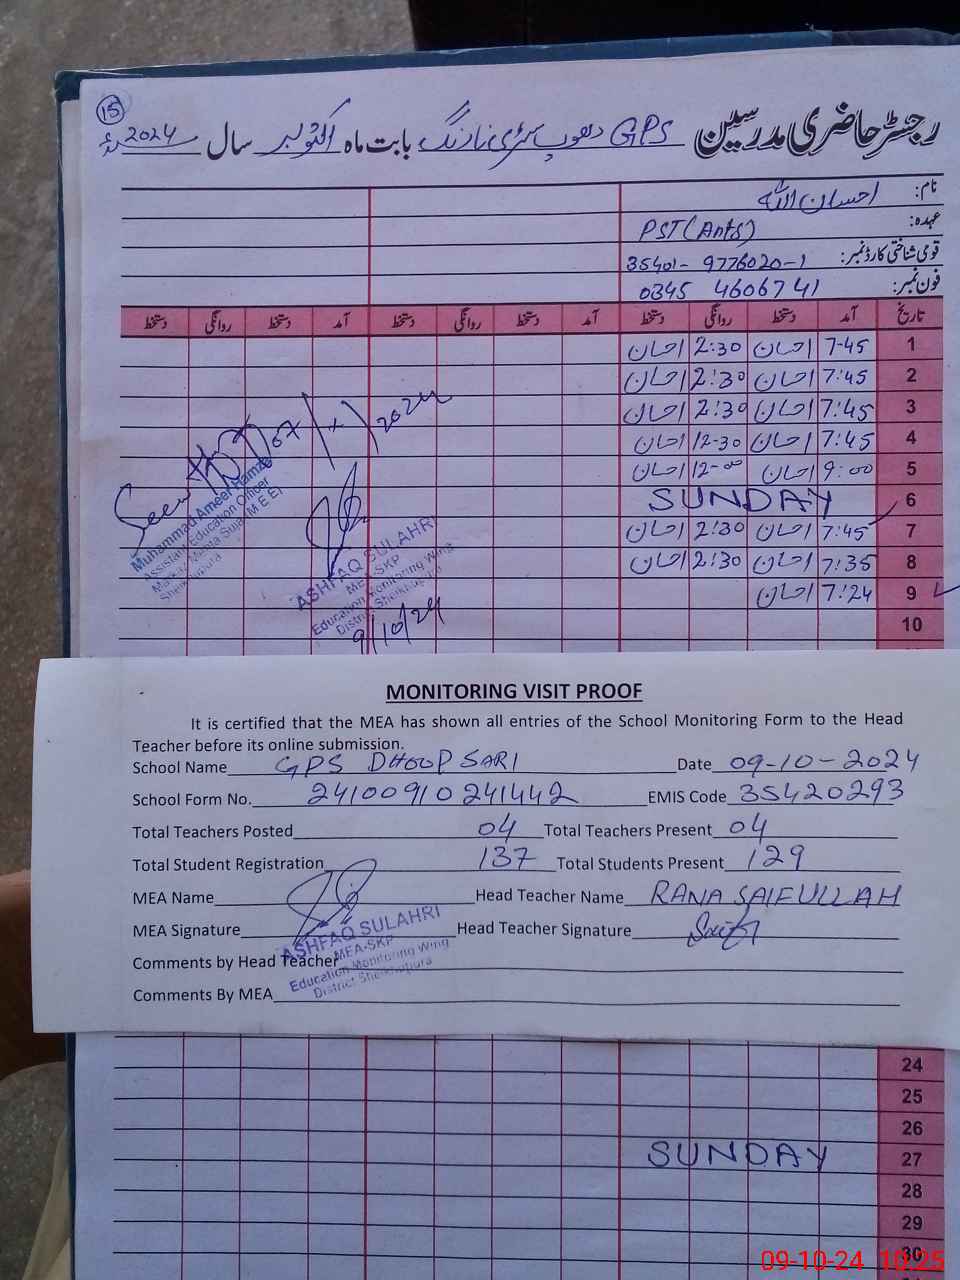 15
رجسٹر حاضری مدرسین GPS دھوپ سڑی نارنگ بابت ماہ اکتوبر سال 2024ء
نام: احسان اللہ
عہدہ: PST (Arts)
قومی شناختی کارڈ نمبر: 35401-9776020-1
فون نمبر: 0345 4606741
تاریخ آمد دستخط روانگی دستخط آمد دستخط روانگی دستخط آمد دستخط روانگی دستخط
1 7-45 احسان 2:30 احسان
2 7:45 احسان 2:30 احسان
3 7:45 احسان 2:30 احسان
4 7:45 احسان 12-30 احسان
5 9:00 احسان 12-00 احسان
6 SUNDAY
7 7:45 احسان 2:30 احسان
8 7:35 احسان 2:30 احسان
9 7:24 احسان
10
Seen
07/x/2024
Muhammad Ameer Hamza
Assistant Education Officer
Sheikhupura
ASHFAQ SULAHRI
MEA-SKP
Education Monitoring Wing
District Sheikhupura
9/10/24
MONITORING VISIT PROOF
It is certified that the MEA has shown all entries of the School Monitoring Form to the Head
Teacher before its online submission.
School Name GPS DHOOP SARI Date 09-10-2024
School Form No. 24100910241442 EMIS Code 35420293
Total Teachers Posted 04 Total Teachers Present 04
Total Student Registration 137 Total Students Present 129
MEA Name Head Teacher Name RANA SAIFULLAH
MEA Signature Head Teacher Signature Saif
ASHFAQ SULAHRI
MEA-SKP
Education Monitoring Wing
District Sheikhupura
Comments by Head Teacher
Comments By MEA
24
25
26
27 SUNDAY
28
29
30
09-10-24 10:25